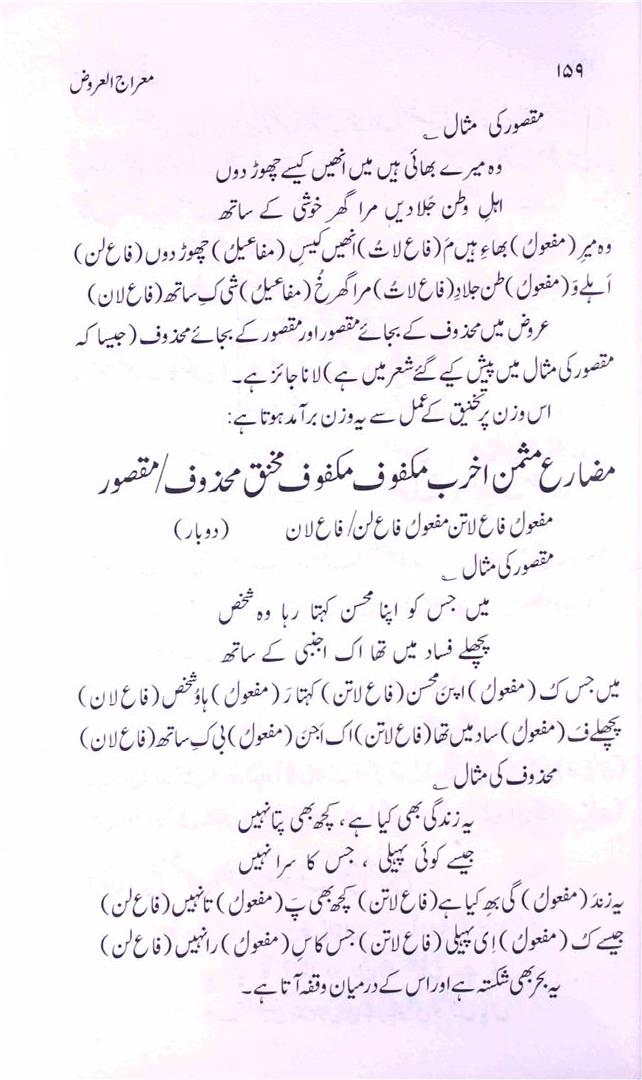 ۱۵۹
معراج العروض
مقصور کی مثال ؎
وہ میرے بھائی ہیں میں انھیں کیسے چھوڑ دوں
اہلِ وطن جَلا دیں مرا گھر خوشی کے ساتھ
وہ میرِ (مفعولُ) بھاءِ ہیں مَ (فاع لاتُ) انھیں کیسِ (مفاعیلُ) چھوڑ دوں (فاع لن)
اَہلے وَ (مفعولُ) طن جلادِ (فاع لاتُ) مرا گھر خُ (مفاعیلُ) شی کِ ساتھ (فاع لان)
عروض میں محذوف کے بجائے مقصور اور مقصور کے بجائے محذوف (جیسا کہ
مقصور کی مثال میں پیش کیے گئے شعر میں ہے) لانا جائز ہے۔
اس وزن پر تخنیق کے عمل سے یہ وزن برآمد ہوتا ہے:
مضارع مثمن اخرب مکفوف مکفوف مخنق محذوف/مقصور
مفعولُ فاع لاتن مفعولُ فاع لن/ فاع لان (دوبار)
مقصور کی مثال ؎
میں جس کو اپنا محسن کہتا رہا وہ شخص
پچھلے فساد میں تھا اک اجنبی کے ساتھ
میں جس کُ (مفعولُ) اپنَ محسن (فاع لاتن) کہتا رَ (مفعولُ) ہاوُ شخص (فاع لان)
پچھلے فَ (مفعولُ) ساد میں تھا (فاع لاتن) اک اَجنَ (مفعولُ) بی کِ ساتھ (فاع لان)
محذوف کی مثال ؎
یہ زندگی بھی کیا ہے، کچھ بھی پتا نہیں
جیسے کوئی پہیلی ، جس کا سرا نہیں
یہ زندَ (مفعولُ) گی بھِ کیا ہے (فاع لاتن) کچھ بھی پَ (مفعولُ) تا نہیں (فاع لن)
جیسے کُ (مفعولُ) اِی پہیلی (فاع لاتن) جس کا سِ (مفعولُ) را نہیں (فاع لن)
یہ بحر بھی شکستہ ہے اور اس کے درمیان وقفہ آتا ہے۔